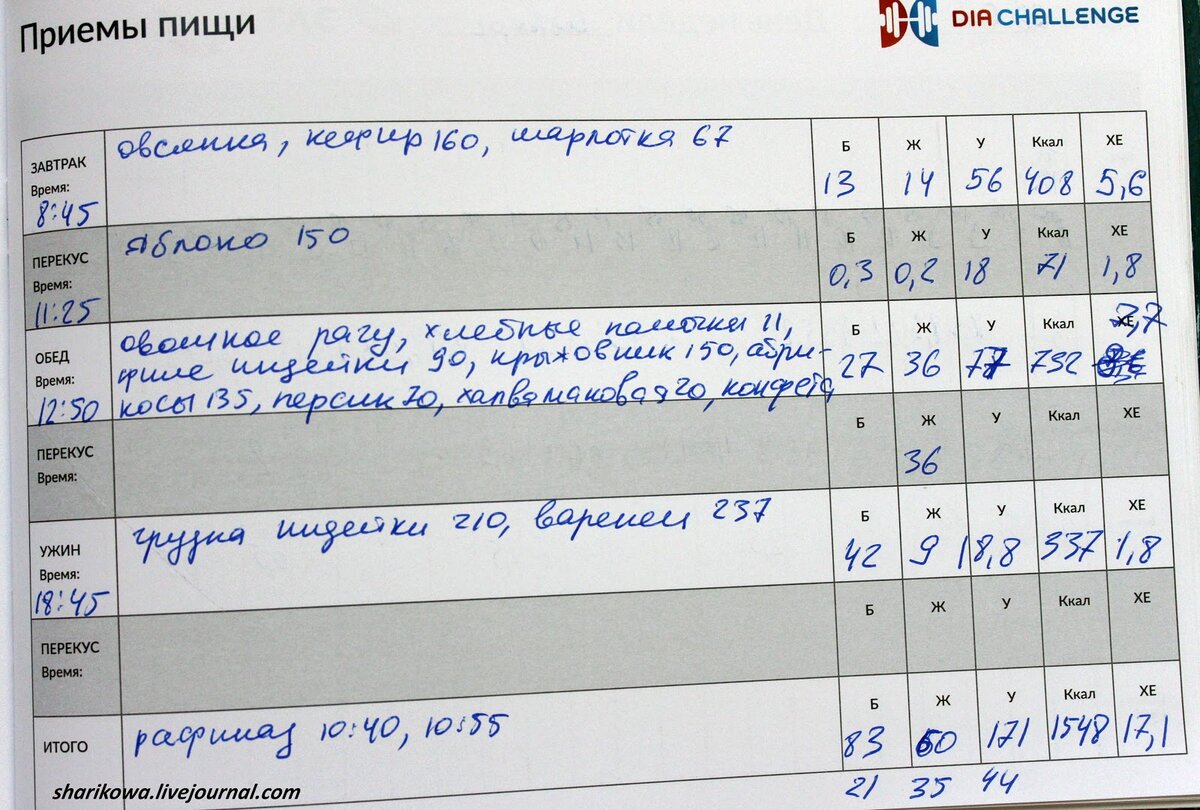 Приемы пищи
DIA CHALLENGE
ЗАВТРАК
Время:
8:45
овсянка, кефир 160, шарлотка 67
Б Ж У Ккал ХЕ
13 14 56 408 5,6
ПЕРЕКУС
Время:
11:25
Яблоко 150
Б Ж У Ккал ХЕ
0,3 0,2 18 71 1,8
ОБЕД
Время:
12:50
овощное рагу, хлебные палочки 11,
филе индейки 90, крыжовник 150, абри-
косы 135, персик 70, халва маковая 20, конфета
Б Ж У Ккал ХЕ
7,7
27 36 77 732
ПЕРЕКУС
Время:
Б Ж У Ккал ХЕ
36
УЖИН
Время:
18:45
грудка индейки 210, варенец 237
Б Ж У Ккал ХЕ
42 9 18,8 337 1,8
ПЕРЕКУС
Время:
Б Ж У Ккал ХЕ
ИТОГО
рафинад 10:40, 10:55
Б Ж У Ккал ХЕ
83 60 171 1548 17,1
21 35 44
sharikowa.livejournal.com